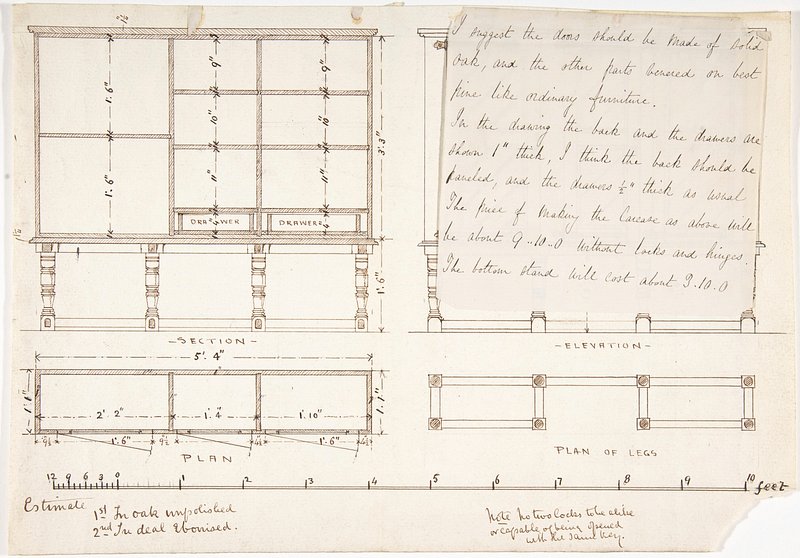 I suggest the doors should be made of solid
oak, and the other parts venered on best
pine like ordinary furniture.
In the drawing the back and the drawers are
shown 1" thick, I think the back should be
paneled, and the drawers ½" thick as usual
The price of making the Carcase as above will
be about 9..10..0 without locks and hinges.
The bottom stand will cost about 3.10.0
1½"
1'. 6"
9"
9"
10"
10"
3'. 3"
1'. 6"
11"
11"
DRAWER
DRAWERS
4"
1½"
1'. 6"
-SECTION-
-ELEVATION-
5'. 4"
1'. 1"
2'. 2"
1'. 4"
1'. 10"
1'. 1"
4½
1'. 6"
9½
4½
1'. 6"
4½
PLAN
PLAN OF LEGS
12 9 6 3 0 1 2 3 4 5 6 7 8 9 10 feet
Estimate 1st In oak unpolished
2nd In deal Ebonised.
Note No two locks to be alike
or capable of being opened
with the same key.